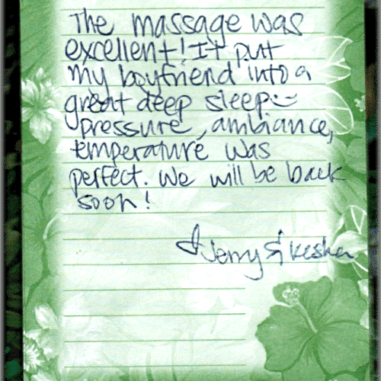 The massage was
excellent! It put
my boyfriend into a
great deep sleep
Pressure, ambiance,
temperature was
perfect. We will be back
soon!
Jerry & Kesha